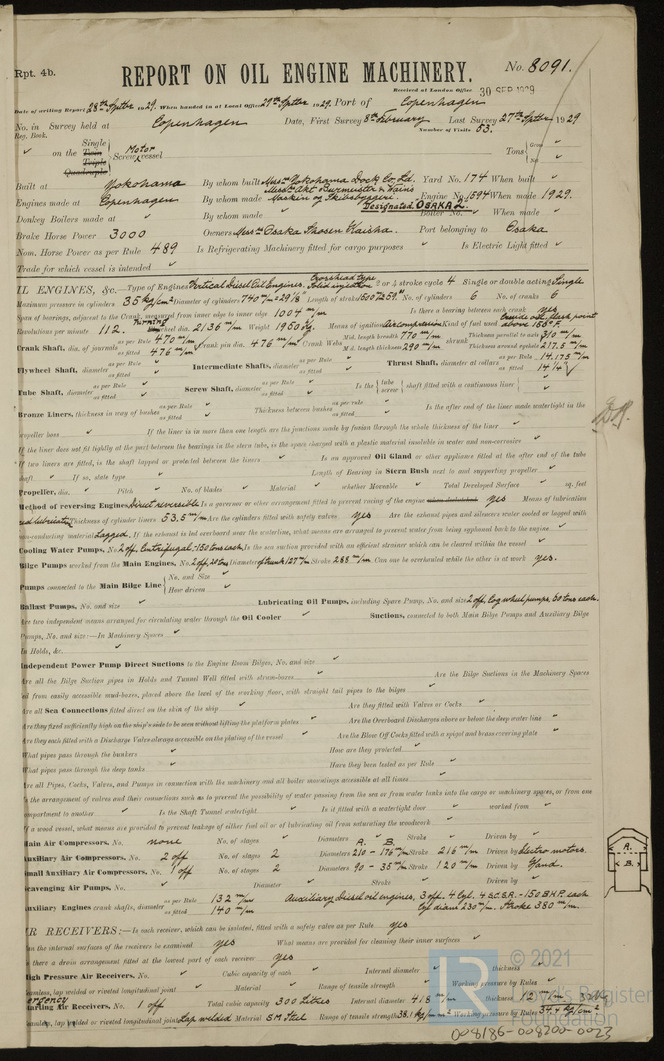 Rpt. 4b.
REPORT ON OIL ENGINE MACHINERY.
No. 8091.
Received at London Office 30 SEP 1929
Date of writing Report 28th Septbr 1929. When handed in at Local Office 27th Septbr 1929. Port of Copenhagen
No. in Reg. Book. Survey held at Copenhagen Date, First Survey 8th February Last Survey 27th Septbr 1929
Number of Visits 53.
on the Single Twin Triple Quadruple Screw Motor vessel Tons Gross Net
Built at Yokohama By whom built Messrs Yokohama Dock Co, Ld. Yard No. 174 When built
Engines made at Copenhagen By whom made Messrs Akt Burmeister & Wain's Maskin og Skibsbyggeri. Engine No. 1594 When made 1929.
Donkey Boilers made at By whom made Designated OSAKA 2. Boiler No. When made
Brake Horse Power 3000 Owners Messrs Osaka Shosen Kaisha. Port belonging to Osaka
Nom. Horse Power as per Rule 489 Is Refrigerating Machinery fitted for cargo purposes Is Electric Light fitted
Trade for which vessel is intended
OIL ENGINES, &c. Type of Engines Vertical Diesel Oil Engines, Crosshead type Solid injection 2 or 4 stroke cycle 4 Single or double acting Single
Maximum pressure in cylinders 35 kg/cm² Diameter of cylinders 740 m/m = 29 1/8" Length of stroke 1500 No. of cylinders 6 No. of cranks 6
Span of bearings, adjacent to the Crank, measured from inner edge to inner edge 1004 m/m Is there a bearing between each crank yes
Revolutions per minute 112. Turning wheel dia. 2136 m/m Weight 1950 kg. Means of ignition Air compression Kind of fuel used Crude oil, flash point above 150° F.
Crank Shaft, dia. of journals as per Rule 470 m/m as fitted 476 m/m Crank pin dia. 476 m/m Crank Webs Mid. length breadth 770 m/m Mid. length thickness 290 m/m shrunk Thickness parallel to axis 310 m/m Thickness around eyehole 217.5 m/m
Flywheel Shaft, diameter as per Rule as fitted Intermediate Shafts, diameter as per Rule as fitted Thrust Shaft, diameter at collars as per Rule 14.175 m/m as fitted 14 1/4"
Tube Shaft, diameter as per Rule as fitted Screw Shaft, diameter as per Rule as fitted Is the tube screw shaft fitted with a continuous liner
Bronze Liners, thickness in way of bushes as per Rule as fitted Thickness between bushes as per rule as fitted Is the after end of the liner made watertight in the
propeller boss If the liner is in more than one length are the junctions made by fusion through the whole thickness of the liner
If the liner does not fit tightly at the part between the bearings in the stern tube, is the space charged with a plastic material insoluble in water and non-corrosive
If two liners are fitted, is the shaft lapped or protected between the liners Is an approved Oil Gland or other appliance fitted at the after end of the tube
shaft If so, state type Length of Bearing in Stern Bush next to and supporting propeller
Propeller, dia. Pitch No. of blades Material whether Moveable Total Developed Surface sq. feet
Method of reversing Engines Direct reversible Is a governor or other arrangement fitted to prevent racing of the engine yes Means of lubrication
Thickness of cylinder liners 53.5 m/m Are the cylinders fitted with safety valves yes Are the exhaust pipes and silencers water cooled or lagged with
non-conducting material Lagged. If the exhaust is led overboard near the waterline, what means are arranged to prevent water from being syphoned back to the engine
Cooling Water Pumps, No. 2 off, Centrifugal, 150 tons each Is the sea suction provided with an efficient strainer which can be cleared within the vessel
Bilge Pumps worked from the Main Engines, No. 2 off, 20 tons Diameter of trunk 127 m/m Stroke 288 m/m Can one be overhauled while the other is at work yes.
Pumps connected to the Main Bilge Line No. and Size How driven
Ballast Pumps, No. and size Lubricating Oil Pumps, including Spare Pump, No. and size 2 off, Cog wheel pumps, 50 tons each.
Are two independent means arranged for circulating water through the Oil Cooler Suctions, connected to both Main Bilge Pumps and Auxiliary Bilge
Pumps, No. and size:—In Machinery Spaces
In Holds, &c.
Independent Power Pump Direct Suctions to the Engine Room Bilges, No. and size
Are all the Bilge Suction pipes in Holds and Tunnel Well fitted with strum-boxes Are the Bilge Suctions in the Machinery Spaces
led from easily accessible mud-boxes, placed above the level of the working floor, with straight tail pipes to the bilges
Are all Sea Connections fitted direct on the skin of the ship Are they fitted with Valves or Cocks
Are they fixed sufficiently high on the ship's side to be seen without lifting the platform plates Are the Overboard Discharges above or below the deep water line
Are they each fitted with a Discharge Valve always accessible on the plating of the vessel Are the Blow Off Cocks fitted with a spigot and brass covering plate
What pipes pass through the bunkers How are they protected
What pipes pass through the deep tanks Have they been tested as per Rule
Are all Pipes, Cocks, Valves, and Pumps in connection with the machinery and all boiler mountings accessible at all times
Is the arrangement of valves and their connections such as to prevent the possibility of water passing from the sea or from water tanks into the cargo or machinery spaces, or from one
compartment to another Is the Shaft Tunnel watertight Is it fitted with a watertight door worked from
If a wood vessel, what means are provided to prevent leakage of either fuel oil or of lubricating oil from saturating the woodwork
Main Air Compressors, No. none No. of stages Diameters Stroke Driven by
Auxiliary Air Compressors, No. 2 off No. of stages 2 Diameters A. 210 - B. 176 m/m Stroke 216 m/m Driven by Electro motors.
Small Auxiliary Air Compressors, No. 1 off No. of stages 2 Diameters 90 - 35 m/m Stroke 120 m/m Driven by Hand.
Scavenging Air Pumps, No. Diameter Stroke Driven by
Auxiliary Engines crank shafts, diameter as per Rule 132 m/m as fitted 140 m/m Auxiliary Diesel oil engines, 3 off. 4 Cyl. 4 S.C.S.A. - 150 B.H.P. each
Cyl diamr 230 m/m. Stroke 380 m/m.
A.
B.
AIR RECEIVERS:—Is each receiver, which can be isolated, fitted with a safety valve as per Rule yes
Can the internal surfaces of the receivers be examined yes What means are provided for cleaning their inner surfaces
Is there a drain arrangement fitted at the lowest part of each receiver yes
High Pressure Air Receivers, No. Cubic capacity of each Internal diameter thickness
Seamless, lap welded or riveted longitudinal joint Material Range of tensile strength Working pressure by Rules
Starting Air Receivers, No. 1 off Total cubic capacity 300 Litres Internal diameter 418 m/m thickness 12 m/m
Seamless, lap welded or riveted longitudinal joint Lap welded Material S.M. Steel Range of tensile strength 38.1 kg/mm² Working pressure by Rules 34.4 kg/cm²
© 2021
LR
Lloyd's Register
Foundation
008186-008200-0023